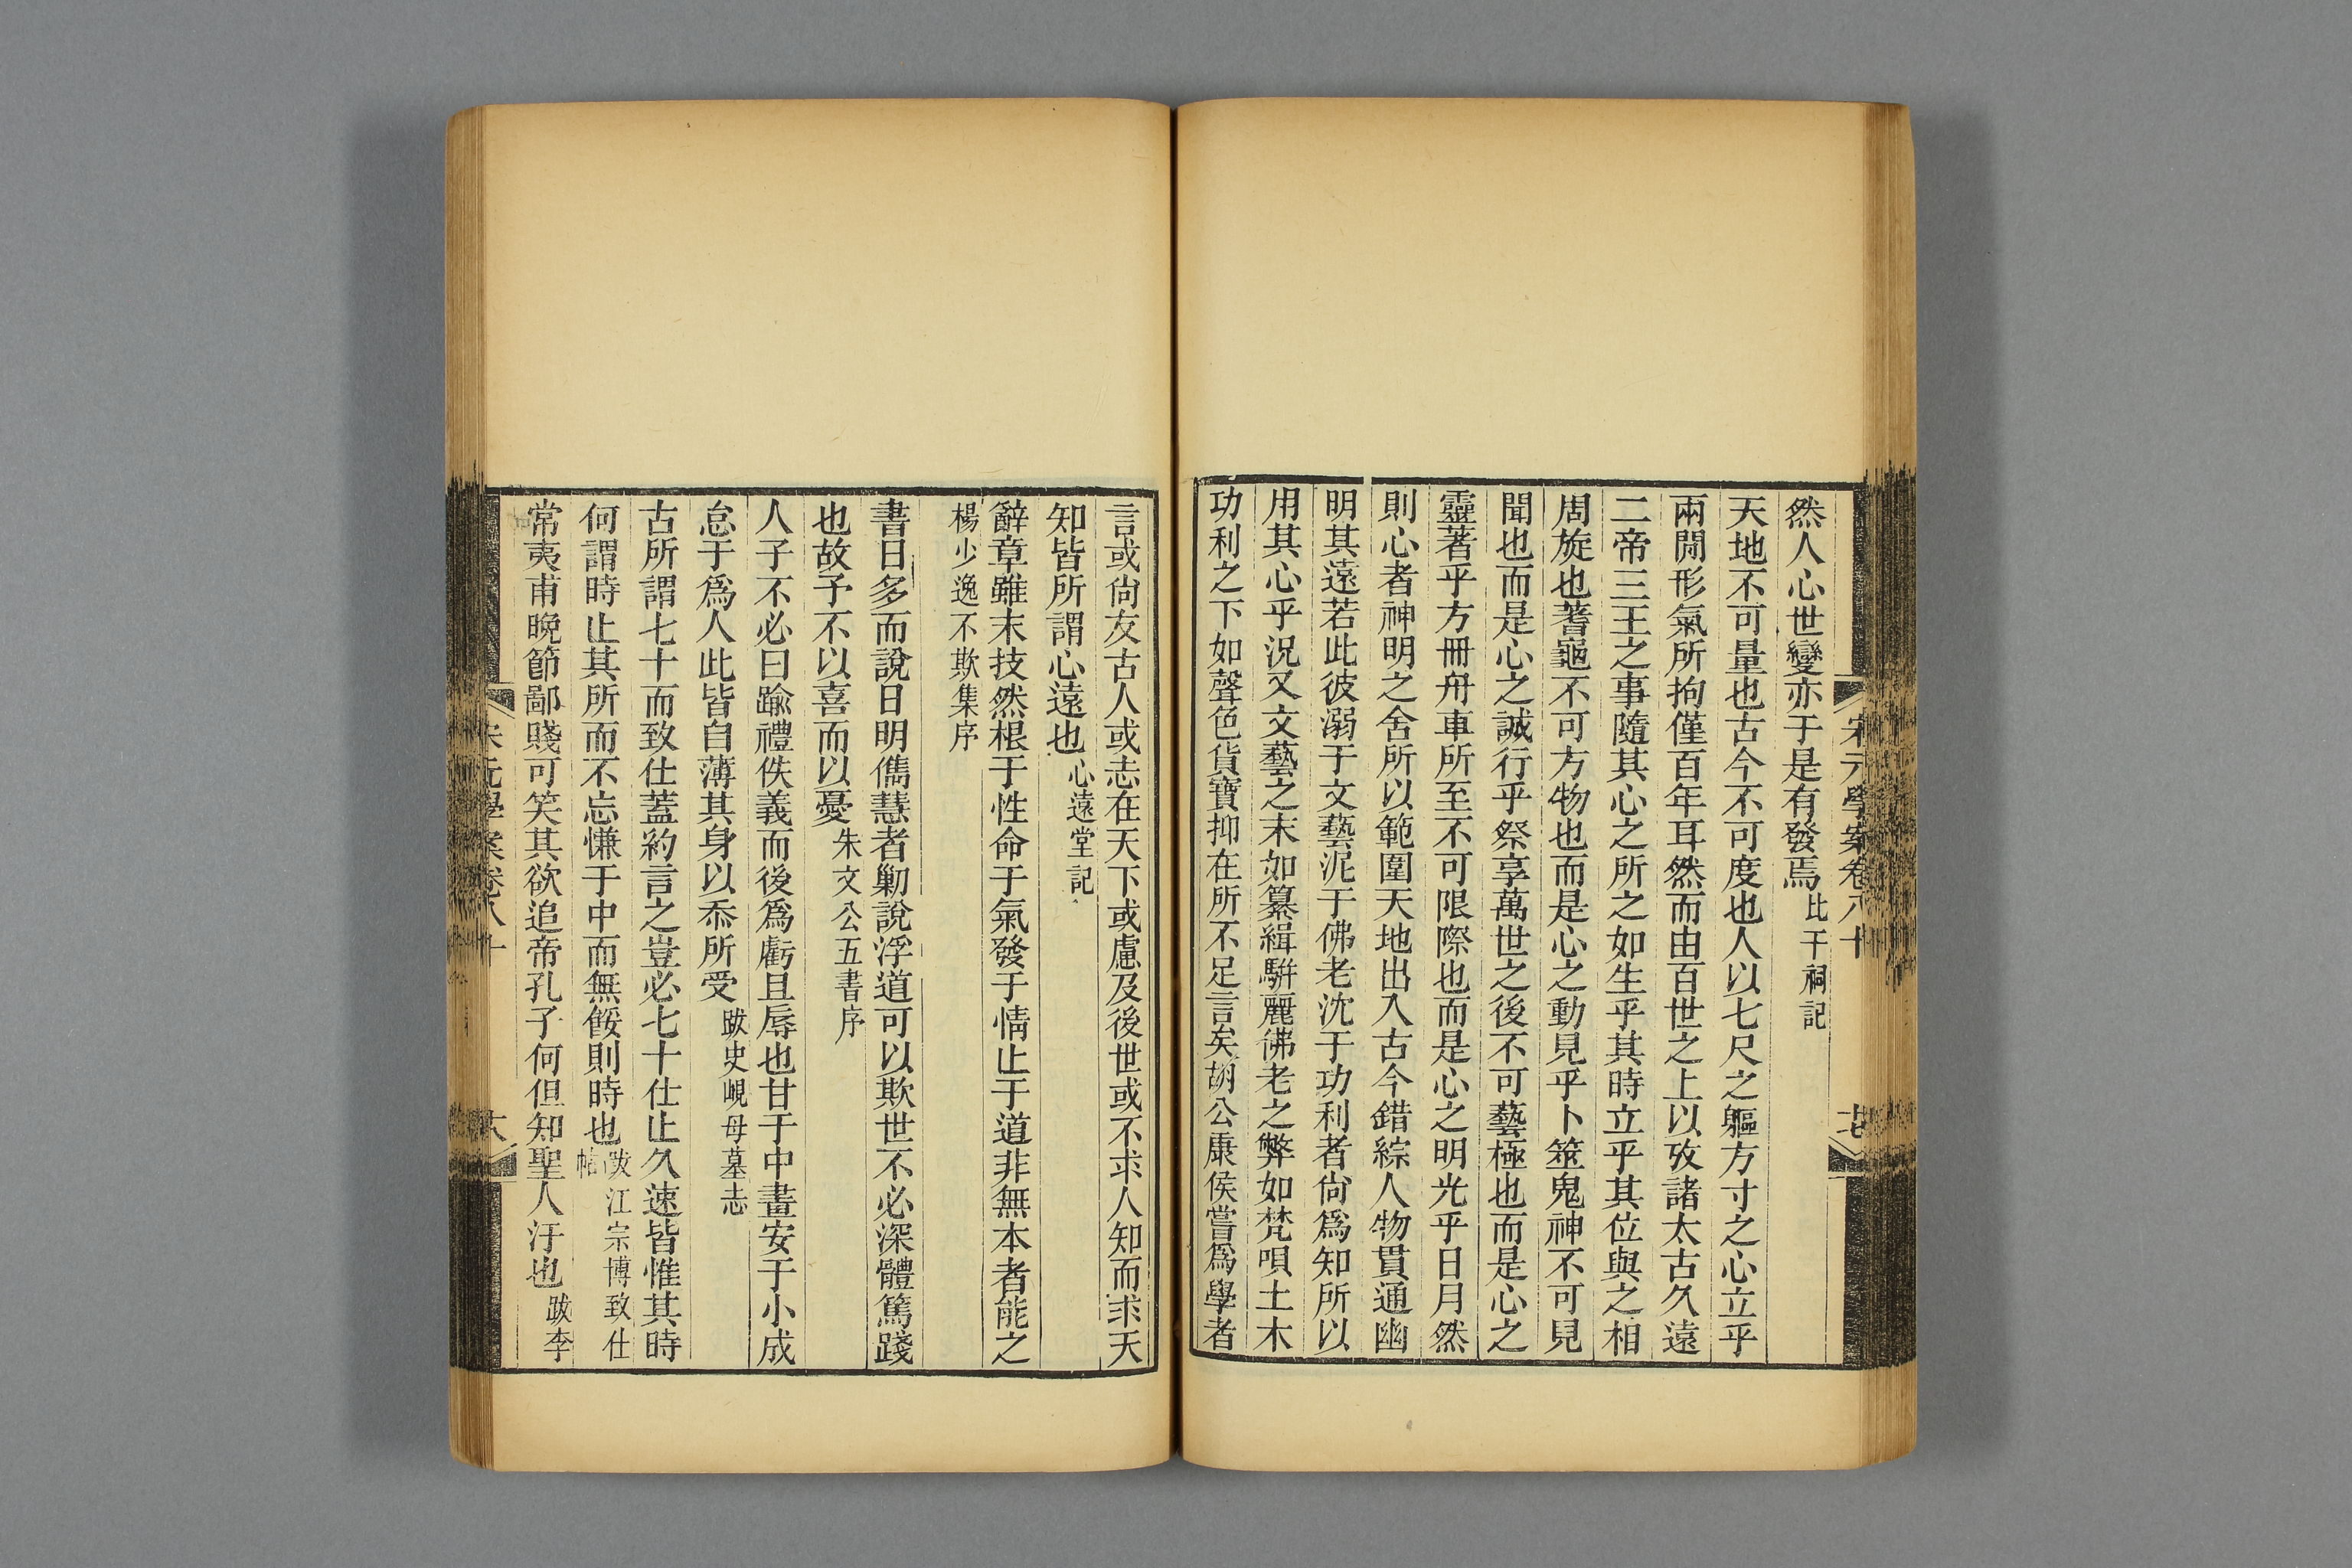 宋元學案卷八十
七
然人心世變亦于是有發焉比干祠記
天地不可量也古今不可度也人以七尺之軀方寸之心立乎
兩閒形氣所拘僅百年耳然而由百世之上以攷諸太古久遠
二帝三王之事隨其心之所之如生乎其時立乎其位與之相
周旋也蓍龜不可方物也而是心之動見乎卜筮鬼神不可見
聞也而是心之誠行乎祭享萬世之後不可藝極也而是心之
靈著乎方冊舟車所至不可限際也而是心之明光乎日月然
則心者神明之舍所以範圍天地出入古今錯綜人物貫通幽
明其遠若此彼溺于文藝泥于佛老沈于功利者尙爲知所以
用其心乎況又文藝之末如纂緝駢麗佛老之弊如梵唄土木
功利之下如聲色貨寶抑在所不足言矣胡公康侯嘗爲學者
言或尙友古人或志在天下或慮及後世或不求人知而求天
知皆所謂心遠也心遠堂記
辭章雖末技然根于性命于氣發于情止于道非無本者能之
楊少逸不欺集序
書日多而說日明儁慧者勦說浮道可以欺世不必深體篤踐
也故予不以喜而以憂朱文公五書序
人子不必曰踰禮佚義而後爲虧且辱也甘于中畫安于小成
怠于爲人此皆自薄其身以忝所受跋史峴母墓志
古所謂七十而致仕蓋約言之豈必七十仕止久速皆惟其時
何謂時止其所而不忘慊于中而無餒則時也跋江宗博致仕
帖
常夷甫晚節鄙賤可笑其欲追帝孔子何但知聖人汙也跋李
宋元學案卷八十
六